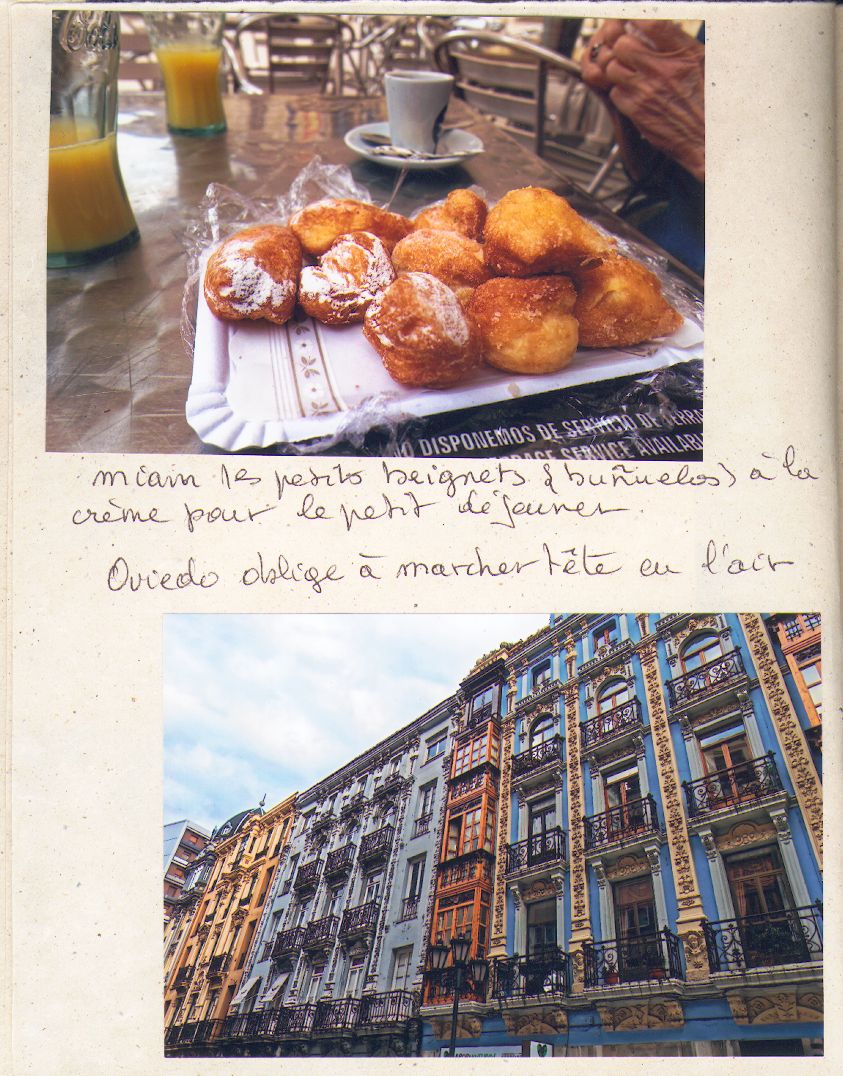 DISPONEMOS DE SERVICIO DE TERRA
ACE SERVICE AVAILABL
miam les petits beignets (buñuelos) à la
crème pour le petit déjeuner.
Oviedo oblige à marcher tête en l'air